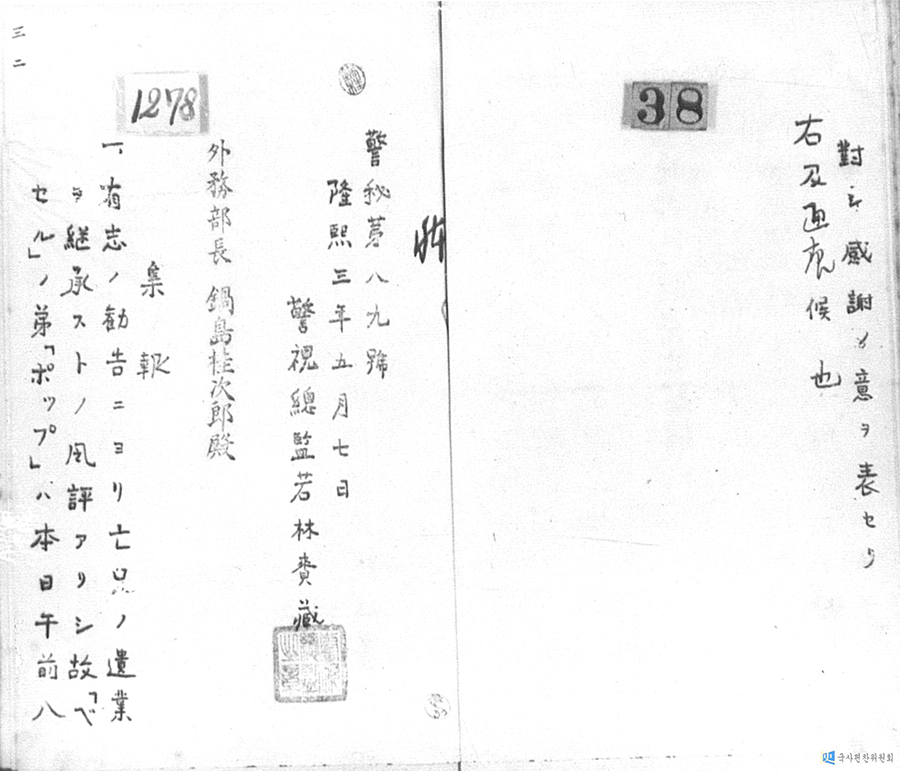 對シ感謝ノ意ヲ表セリ
右及通牒候也
38
警秘第八九號
隆熙三年五月七日
警視總監若林賚藏
外務部長 鍋島桂次郎殿
集報
一、有志ノ勸告ニヨリ亡兄ノ遺業
ヲ継承ストノ風評アリシ故「ベ
セル」ノ弟「ポップ」ハ本日午前八
1278
三二
국사편찬위원회